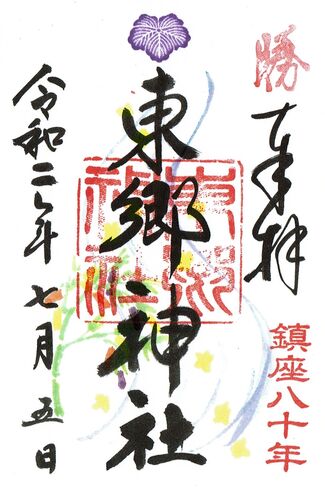 勝
奉拝
鎮座八十年
東郷神社
東郷神社
令和二年七月五日